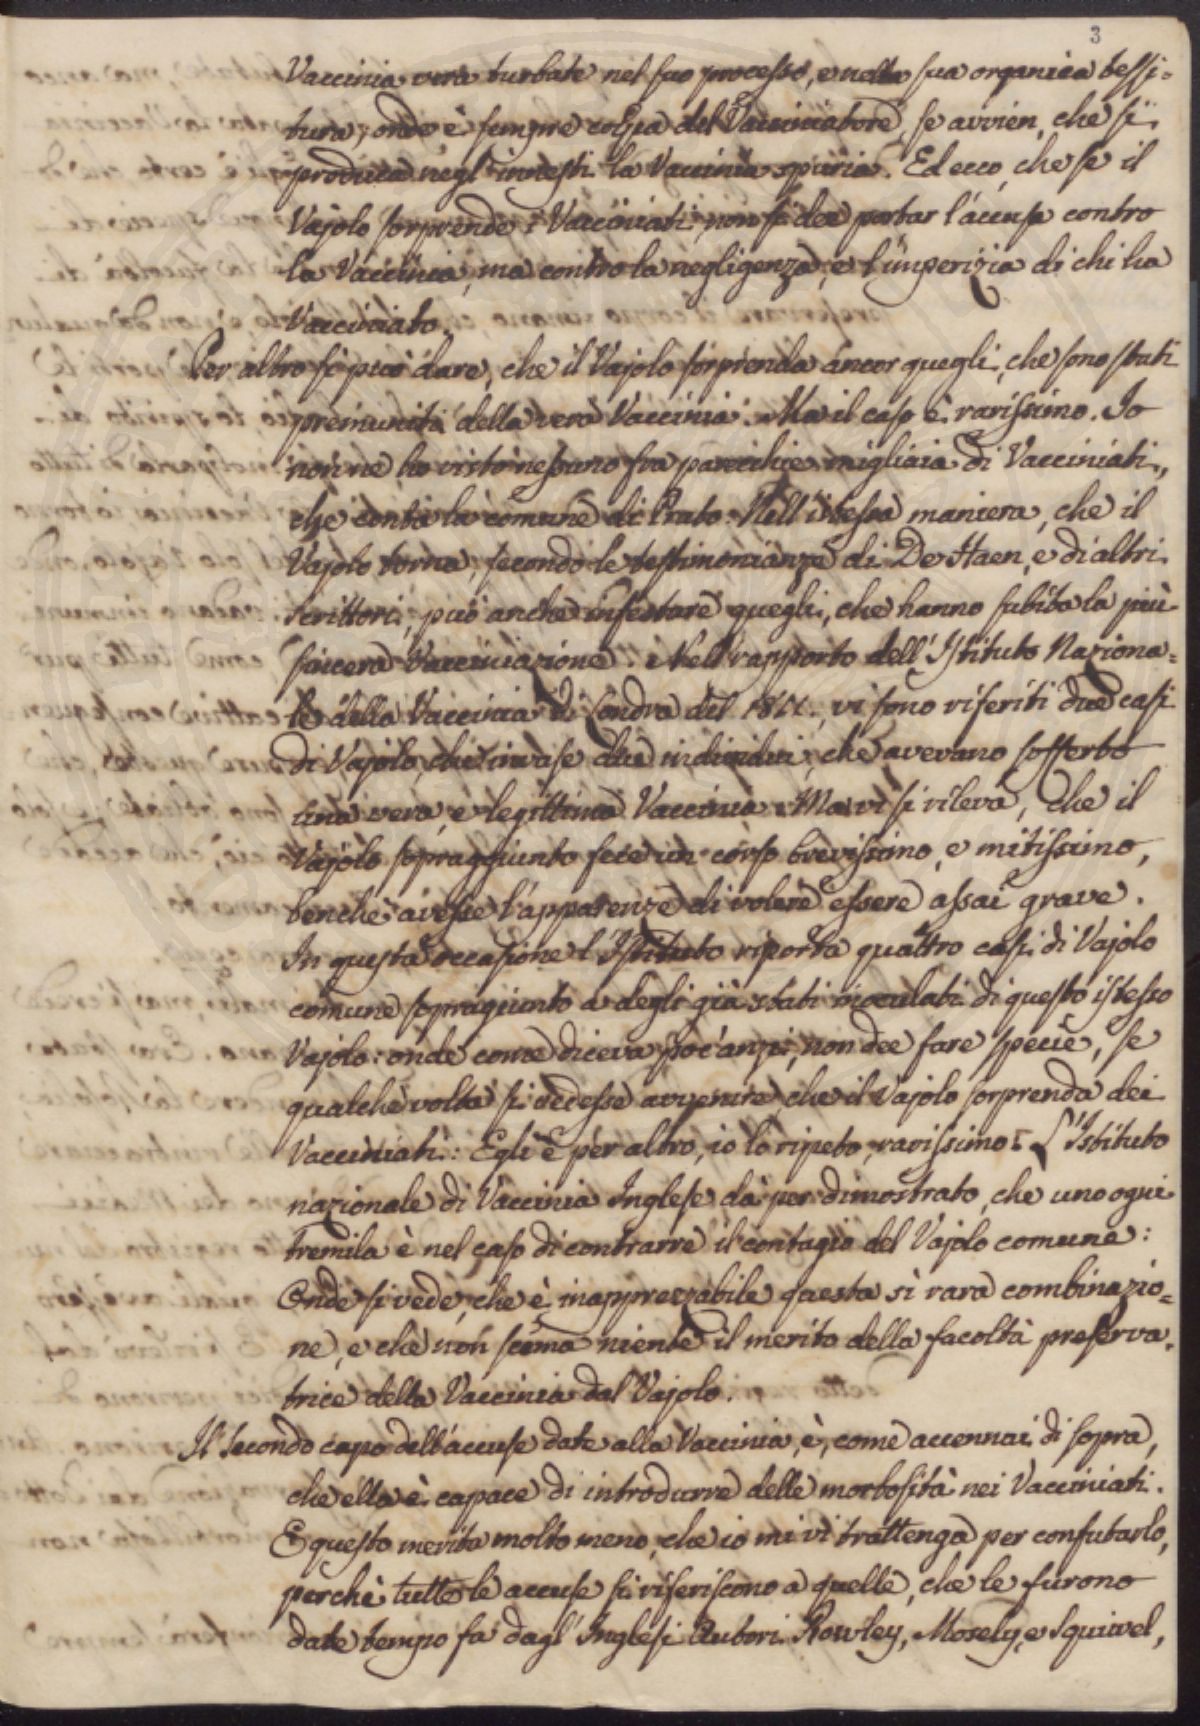 3
Vaccinia vera turbate nel suo processo, e nella sua organica tessi=
tura; onde è sempre colpa del Vacciniatore, se avvien, che si
produca negl'innesti la Vaccinia spuria. Ed ecco, che se il
Vajolo sorprende i Vacciniati, non si dee portar l'accusa contro
la Vaccinia, ma contro la negligenza, e l'imperizia di chi ha
Vacciniato.
Per altro si può dare, che il Vajolo sorprenda ancor quegli, che sono stati
premuniti della vera Vaccinia. Ma il caso è rarissimo. Io
non ne ho visto nessuno fra parecchie migliaia di Vacciniati,
che conta la comune di Prato. Nell'istessa maniera, che il
Vajolo torna, secondo le testimonianze di De Haen, e di altri
scrittori, può anche infestare quegli, che hanno subito la più
sincera Vacciniazione. Nell rapporto dell'Istituto Naziona=
le della Vaccinia di Londra del 1811., vi sono riferiti due casi
di Vajolo, che invase due individui, che avevano sofferto
una vera, e legittima Vaccinia. Ma vi si rileva, che il
Vajolo sopraggiunto fece un corso brevissimo, e mitissimo,
benchè avesse l'apparenze di volere essere assai grave.
In questa occasione l'Istituto riporta quattro casi di Vajolo
comune sopragiunto a degli già stati inoculati di questo istesso
Vajolo: onde come diceva poc'anzi, non dee fare specie, se
qualche volta si vedesse avvenire, che il Vajolo sorprenda dei
Vacciniati: Egli è per altro, io lo ripeto, rarissimo. L'Istituto
nazionale di Vaccinia Inglese dà per dimostrato, che uno ogni
tremila è nel caso di contrarre il contagio del Vajolo comune:
Onde si vede, che è inapprezzabile questa sì rara combinazio=
ne, e che non scema niente il merito della facoltà preserva=
trice della Vaccinia dal Vajolo.
Il secondo capo dell'accuse date alla Vaccinia, è, come accennai di sopra,
che ella è capace di introdurre delle morbosità nei Vacciniati.
E questo merita molto meno, che io mi vi trattenga per confutarlo,
perchè tutte le accuse si riferiscono a quelle, che le furono
date tempo fa dagl'Inglesi Autori Rowley, Mosely, e Squirrel,